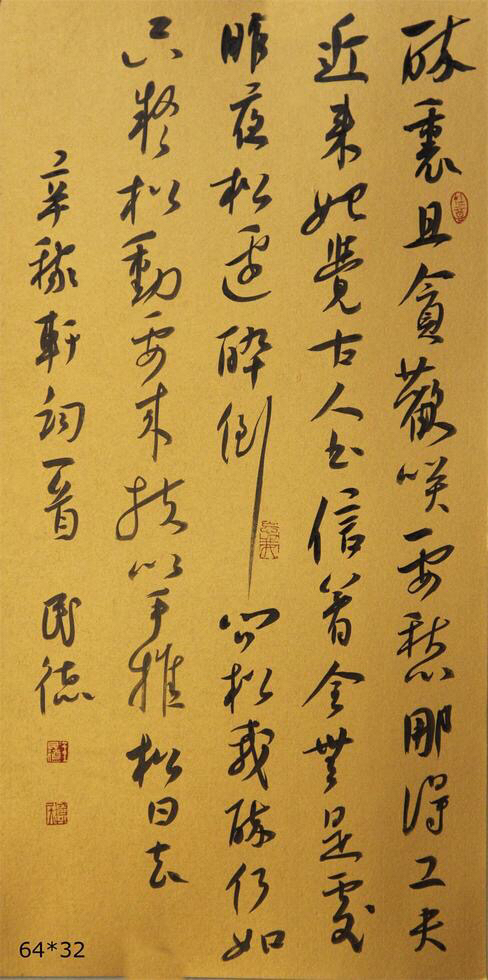 醉裏且貪歡咲要愁那得工夫
近来始覺古人书信着全無是處
昨夜松边醉倒问松我醉何如
只疑松動要来扶以手推松曰去
辛稼軒词一首 民德
64*32